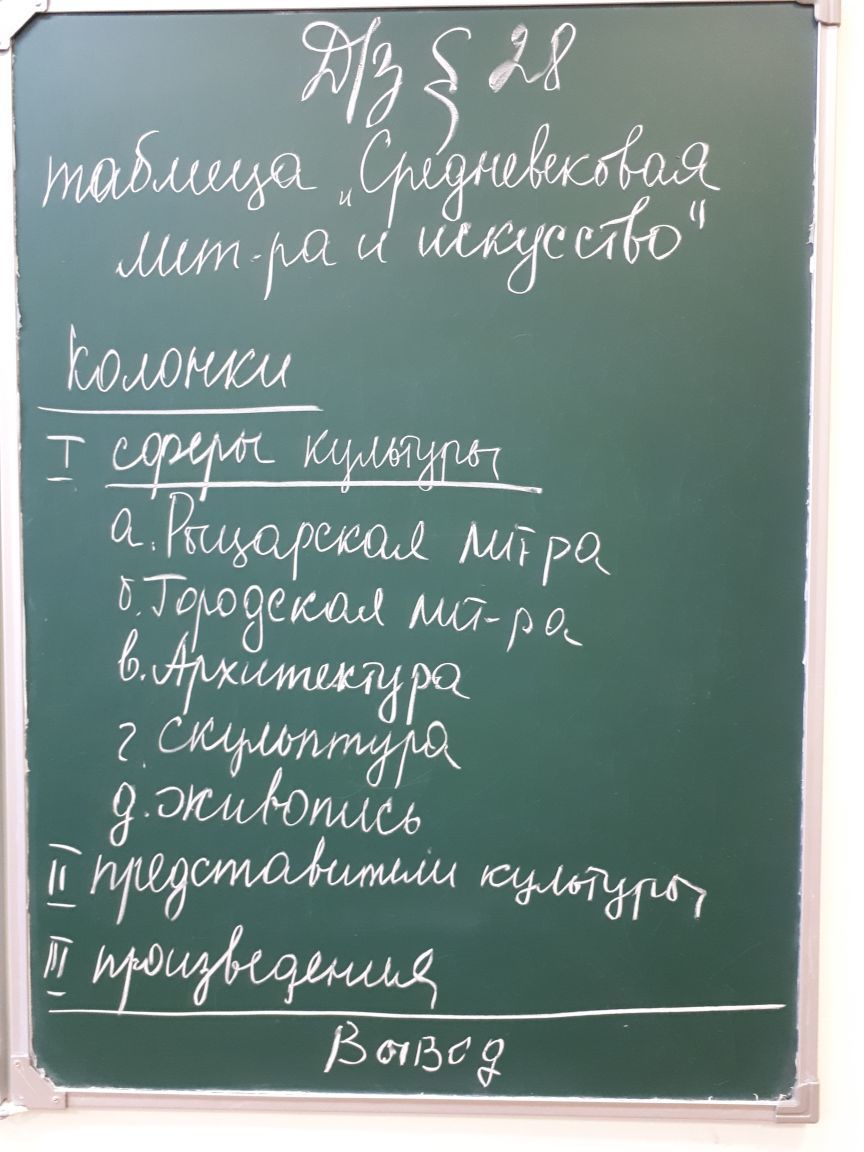 Д/з § 28
таблица „Средневековая
лит-ра и искусство"
Колонки
I сферы культуры
а. Рыцарская лит-ра
б. Городская лит-ра
в. Архитектура
г. Скульптура
д. Живопись
II представители культуры
III произведения
Вывод